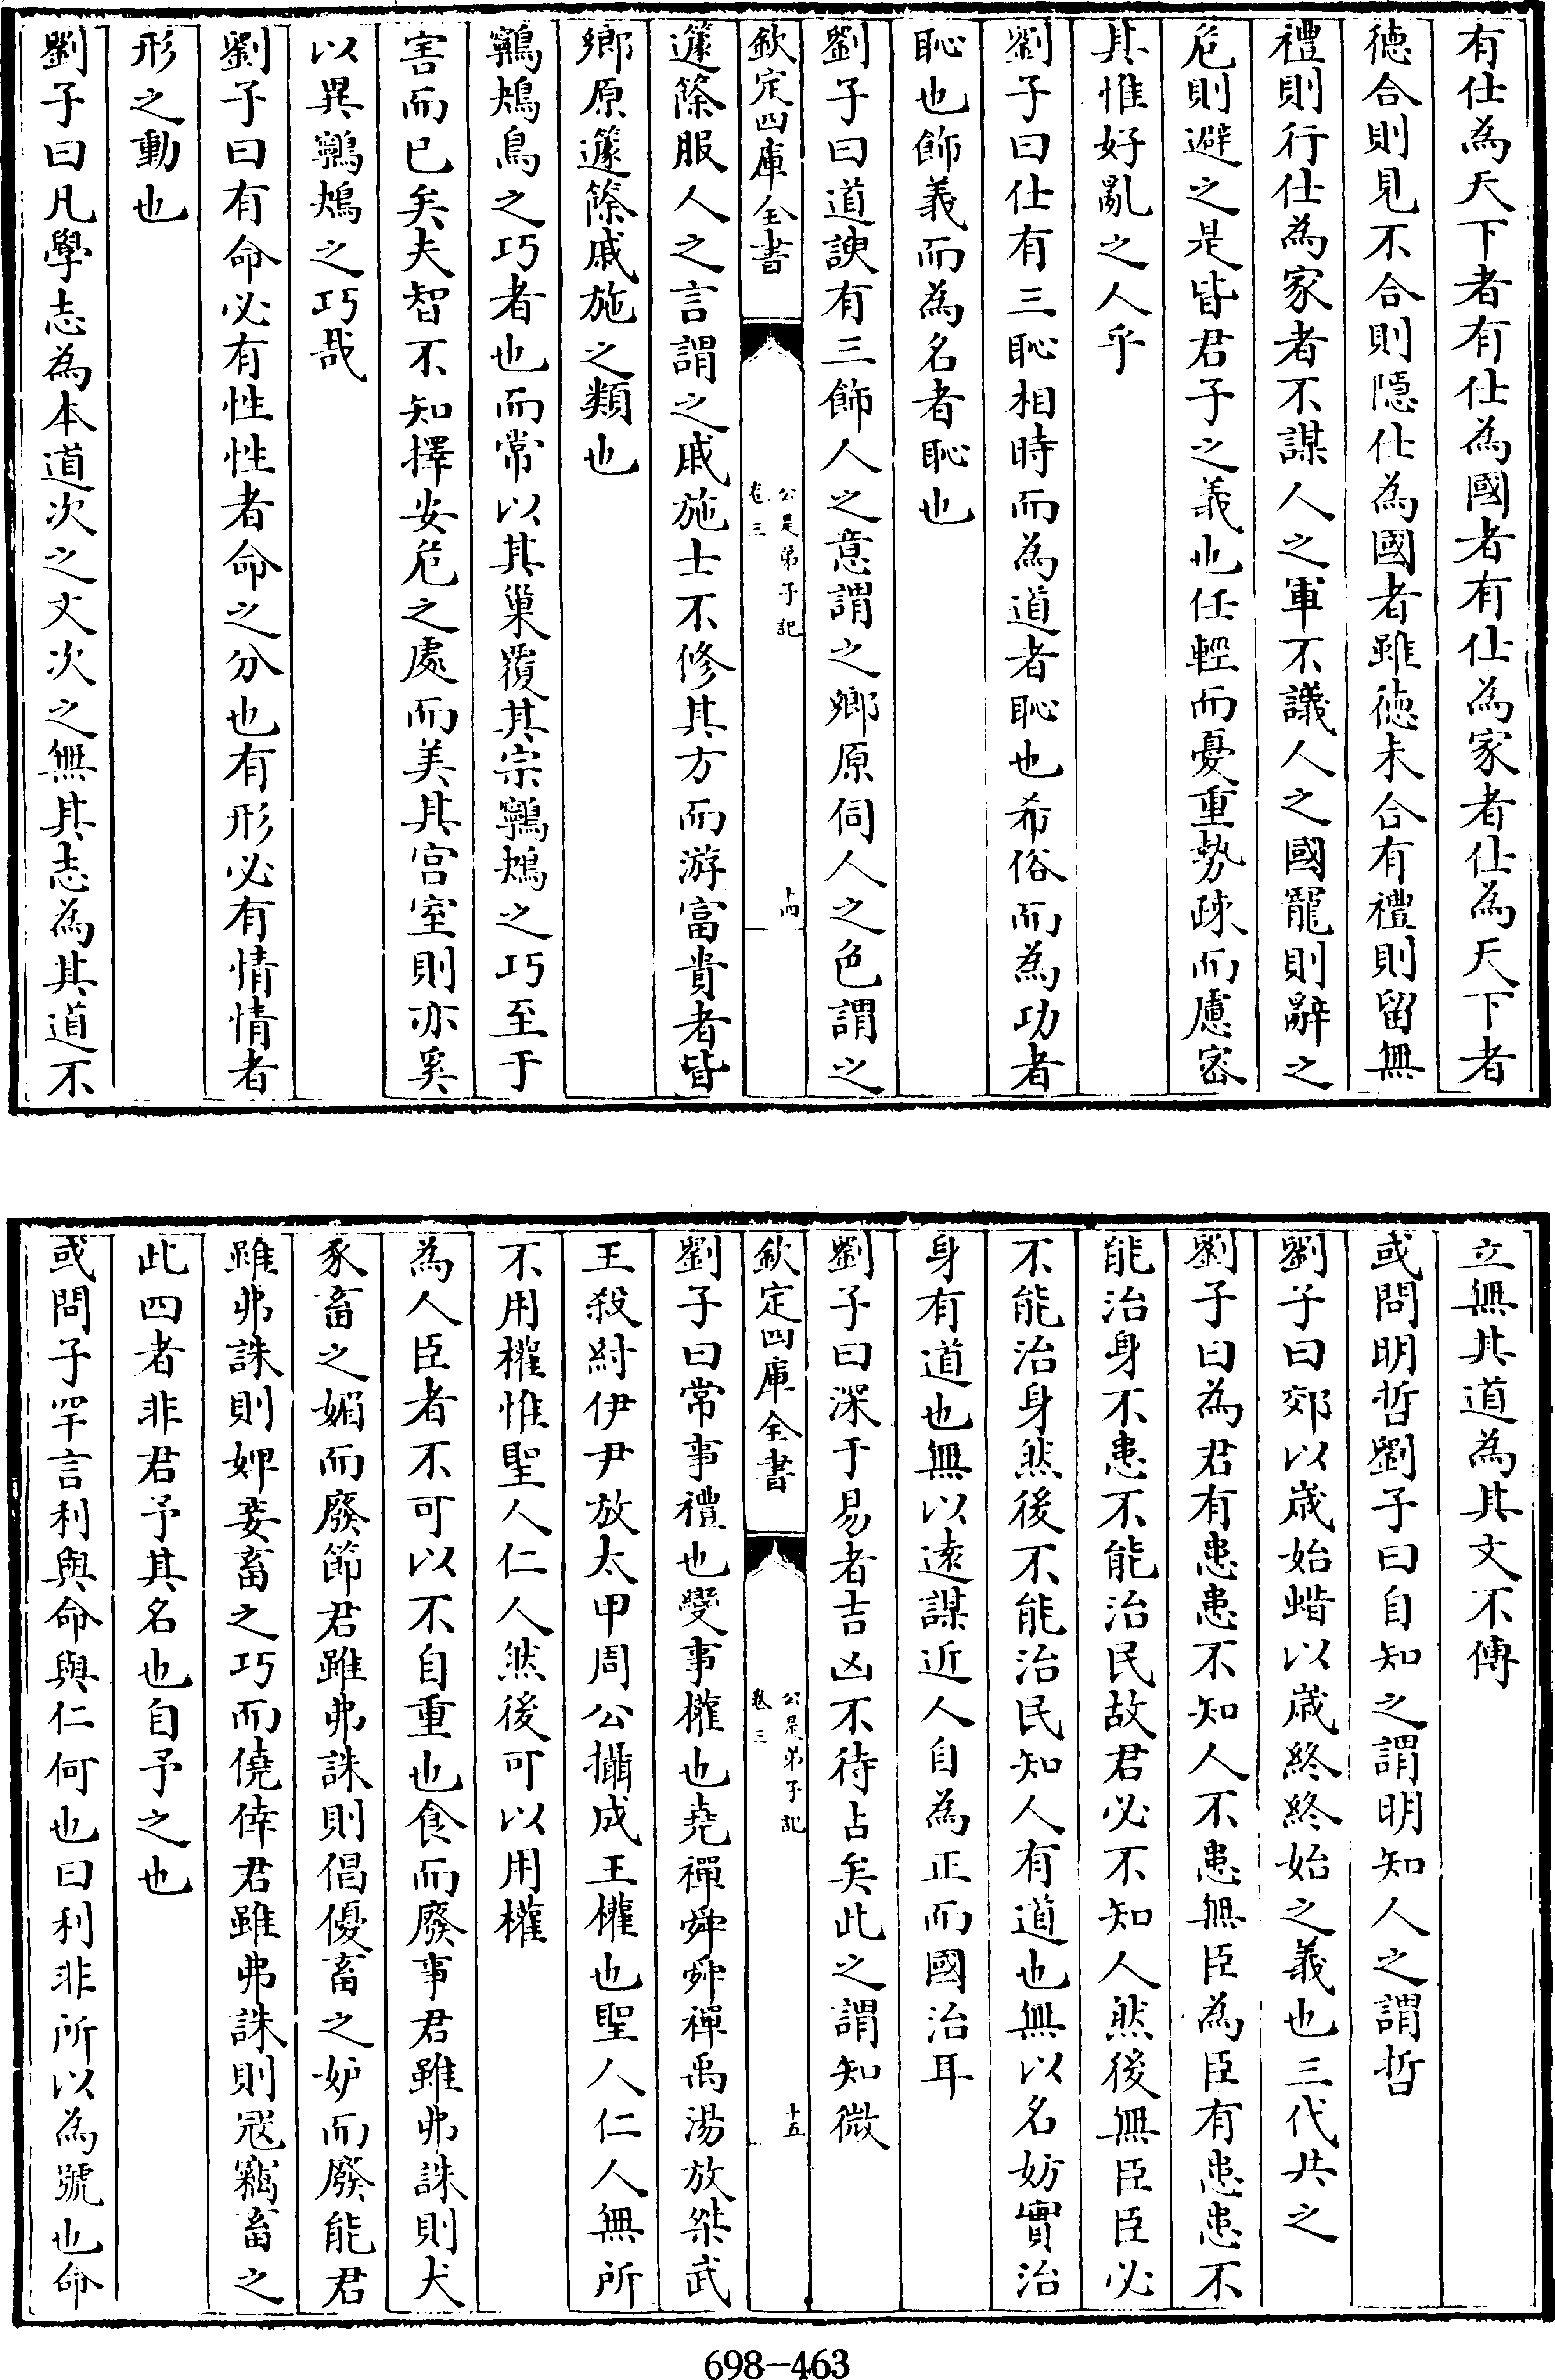 有仕為天下者有仕為國者有仕為家者仕為天下者
徳合則見不合則隠仕為國者雖徳未合有禮則留無
禮則行仕為家者不謀人之軍不議人之國寵則辭之
危則避之是皆君子之義也任輕而憂重勢疎而慮宻
其惟好亂之人乎
劉子曰仕有三恥相時而為道者恥也希俗而為功者
恥也飾義而為名者恥也
劉子曰道諛有三飾人之意謂之鄉原伺人之色謂之
欽定四庫全書
公是弟子記
卷三
十四
籧篨服人之言謂之戚施士不修其方而游富貴者皆
鄉原籧篨戚施之類也
鸋鴂鳥之巧者也而常以其巢覆其宗鸋鴂之巧至于
害而已矣夫智不知擇安危之處而美其宫室則亦奚
以異鸋鴂之巧哉
劉子曰有命必有性性者命之分也有形必有情情者
形之動也
劉子曰凡學志為本道次之文次之無其志為其道不
立無其道為其文不傳
或問明哲劉子曰自知之謂明知人之謂哲
劉子曰郊以嵗始蜡以嵗終終始之義也三代共之
劉子曰為君有患患不知人不患無臣為臣有患患不
能治身不患不能治民故君必不知人然後無臣臣必
不能治身然後不能治民知人有道也無以名妨實治
身有道也無以遠謀近人自為正而國治耳
劉子曰深于易者吉凶不待占矣此之謂知微
欽定四庫全書
公是弟子記
卷三
十五
劉子曰常事禮也變事權也堯禪舜舜禪禹湯放桀武
王殺紂伊尹放太甲周公攝成王權也聖人仁人無所
不用權惟聖人仁人然後可以用權
為人臣者不可以不自重也食而廢事君雖弗誅則犬
豕畜之媚而廢節君雖弗誅則倡優畜之妒而廢能君
雖弗誅則婢妾畜之巧而僥倖君雖弗誅則冦竊畜之
此四者非君予其名也自予之也
或問子罕言利與命與仁何也曰利非所以為號也命
698-463